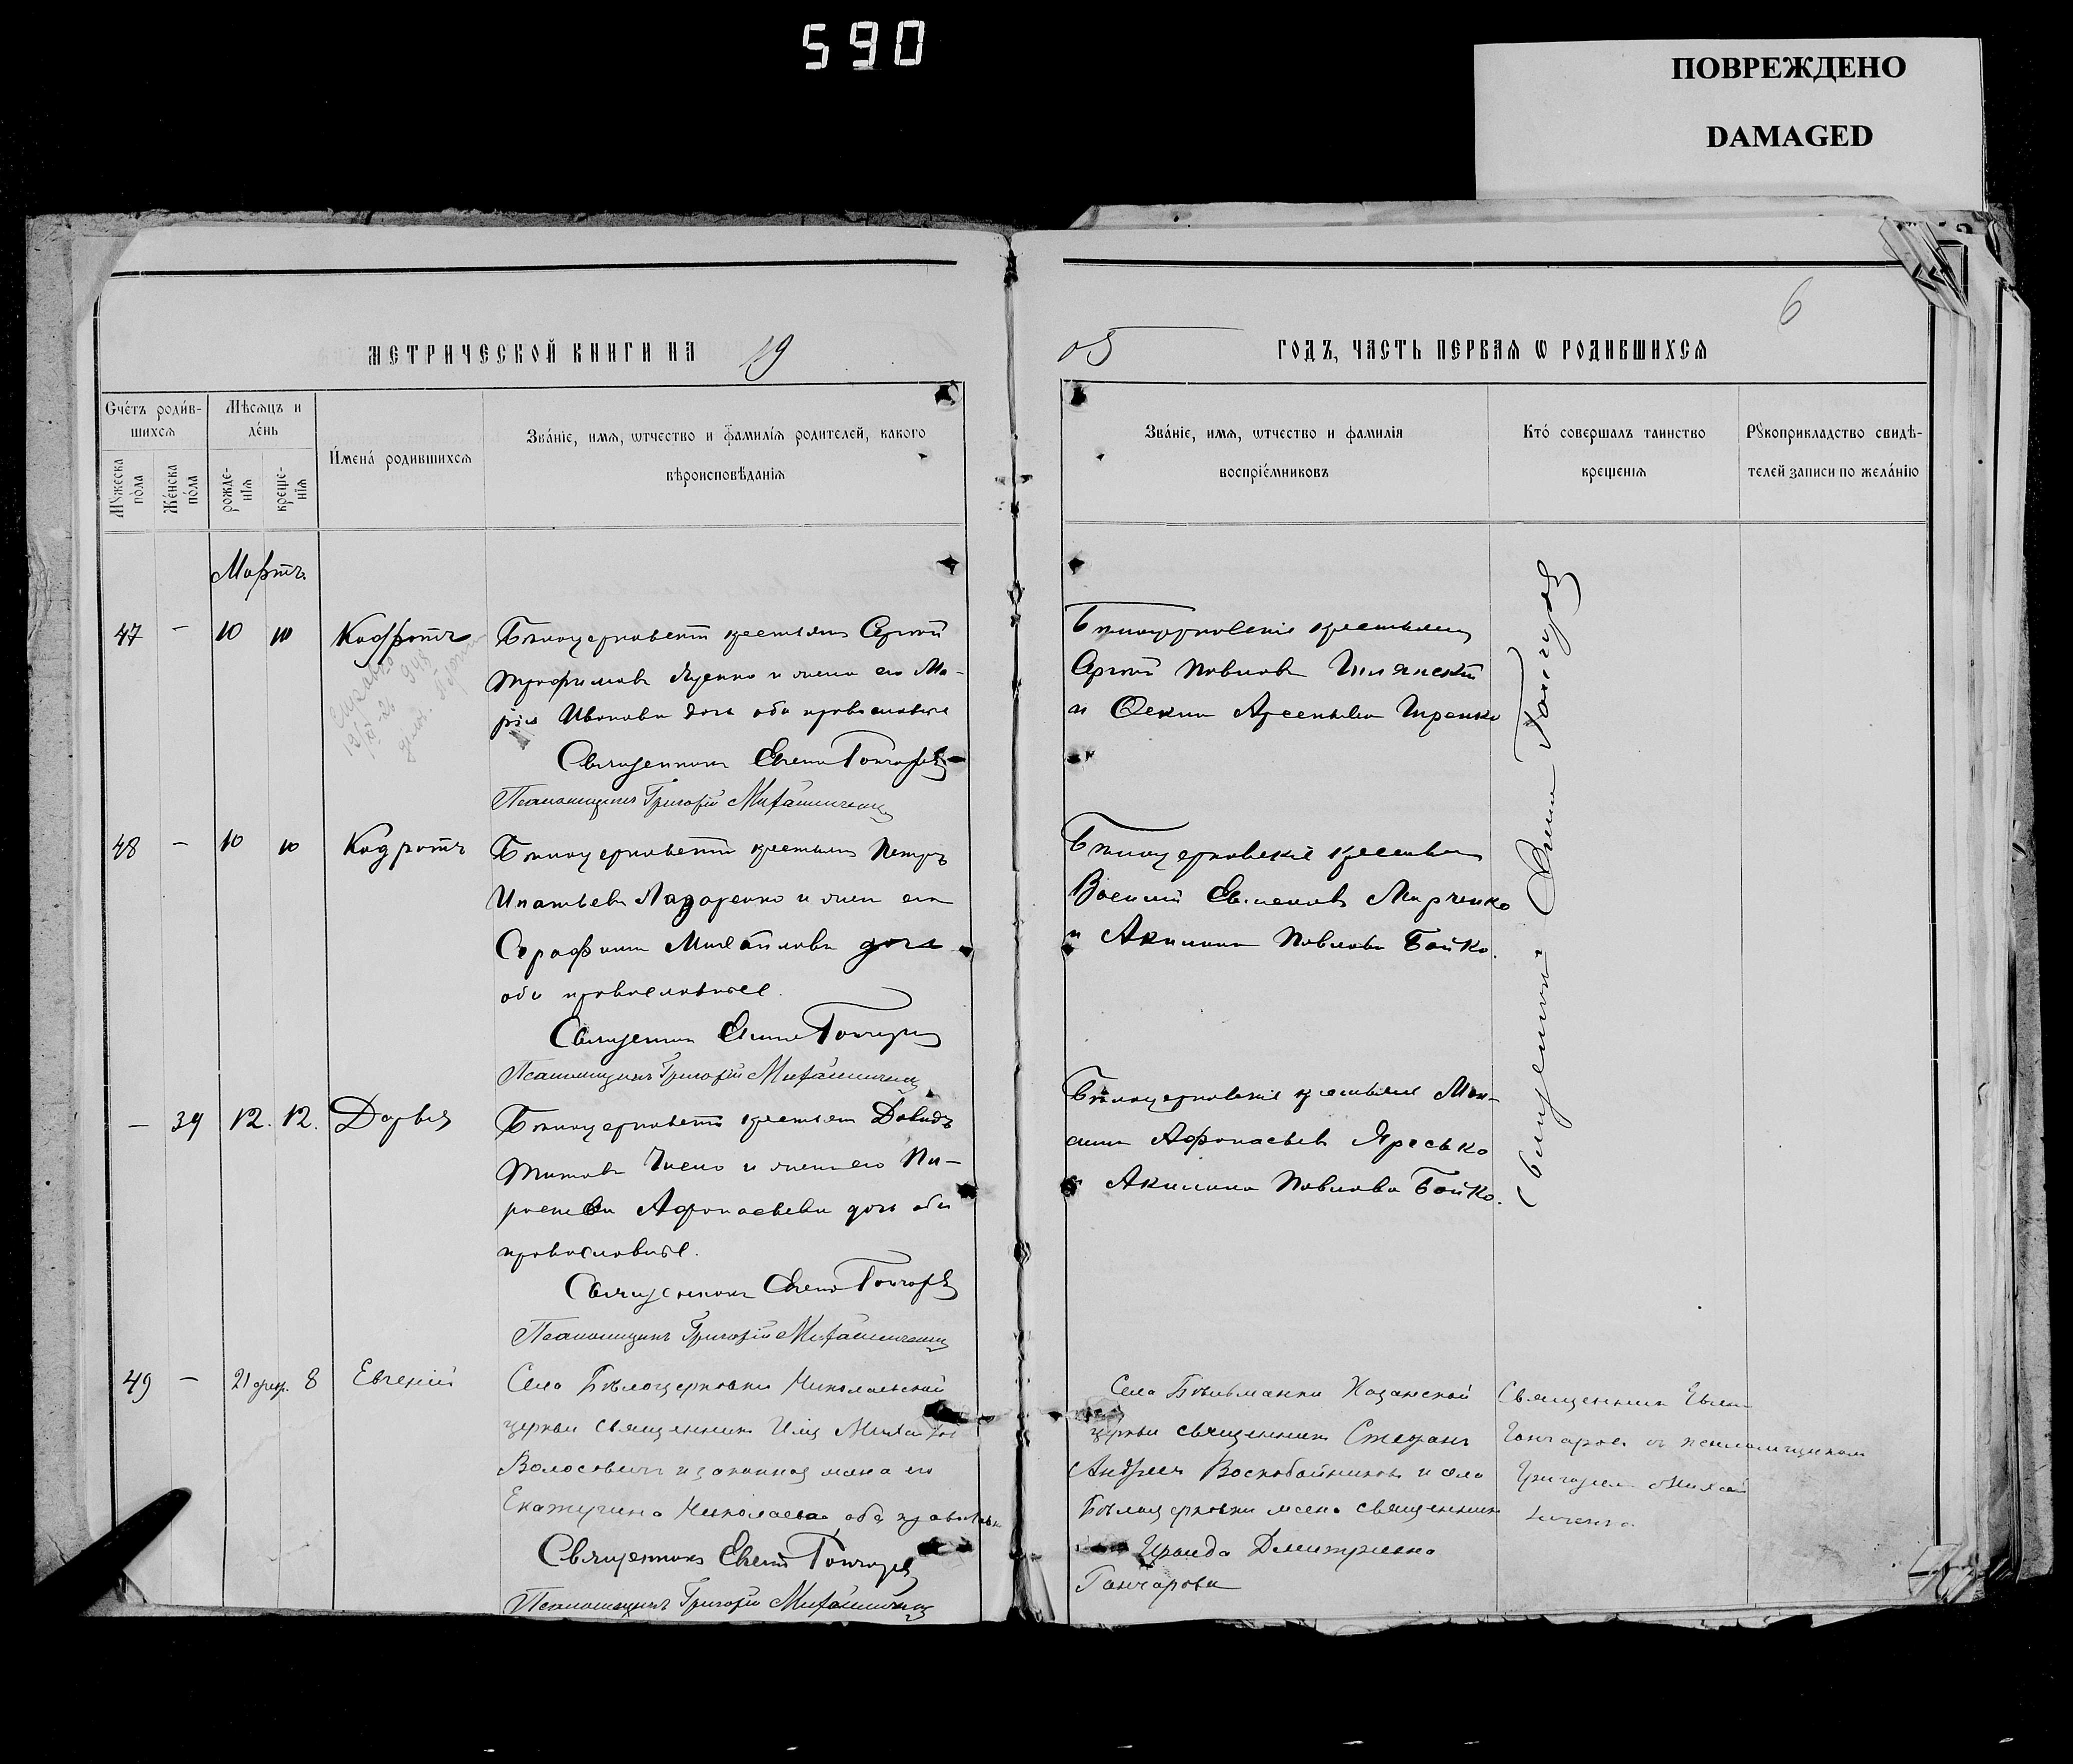 590
ПОВРЕЖДЕНО
DAMAGED
6
МЕТРИЧЕСКОЙ КНИГИ НА 19
05 ГОДЪ, ЧАСТЬ ПЕРВАЯ Ѡ РОДИВШИХСЯ
Счётъ роди́в-
шихсѧ
Мѣсѧцъ и
де́нь
Мꙋжеска
по́ла
Же́нска
по́ла
рожде-
нїѧ
креще-
нїѧ
И́мена́ роди́вшихсѧ
Зва́нїе, имѧ, ѿтчество и фамилїѧ родителей, какого
вѣроисповѣ́данїѧ
Зва́нїе, имѧ, ѿтчество и фамилїѧ
воспрїе́мниковъ
Кто́ совершалъ таинство
крещенїѧ
Рꙋкоприкладство свидѣ-
телей записи по жела́нїю
Мартъ
47 – 10 10 Кодратъ
Бѣлоцерковскій крестьянинъ Сергій
Трофимовъ Яценко и жена его Ма-
рія Иванова дочь оба православные
Священникъ Евгеній Гончаровъ
Псаломщикъ Григорій
Бѣлоцерковскіе крестьяне
Сергій Павловъ
и Арсеньева
48 – 10 10 Кодратъ
Бѣлоцерковскій крестьянинъ Петръ
Игнатьевъ Лазаренко и жена его
Серафима Михайлова дочь
оба православные.
Священникъ Евгеній Гончаровъ
Псаломщикъ Григорій
Бѣлоцерковскіе крестьяне
Василій Марченко
и Акилина Павлова Бойко.
– 39 12. 12. Дарья
Бѣлоцерковскій крестьянинъ Давидъ
Титовъ и жена его Па-
раскева Афонасьева дочь оба
православные.
Священникъ Евгеній Гончаровъ
Псаломщикъ Григорій
Бѣлоцерковскіе крестьяне
Афонасьевъ Яресько
и Акилина Павлова Бойко.
Священникъ Евгеній Гончаровъ
49 – 21 февр. 8 Евгеній
Село Бѣлоцерковки Николаевской
церкви священникъ Илія Михайловъ
Волосевичъ и законная жена его
Екатерина Николаева оба православн
Священникъ Евгеній Гончаровъ
Псаломщикъ Григорій
Села Бѣльманки Казанской
церкви священникъ Стефанъ
Андреевъ Воскобойниковъ и села
Бѣлоцерковки жена священника
Ираида Дмитріевна
Гончарова
Священникъ Евгеній
Гончаровъ съ псаломщикомъ
Григоріемъ